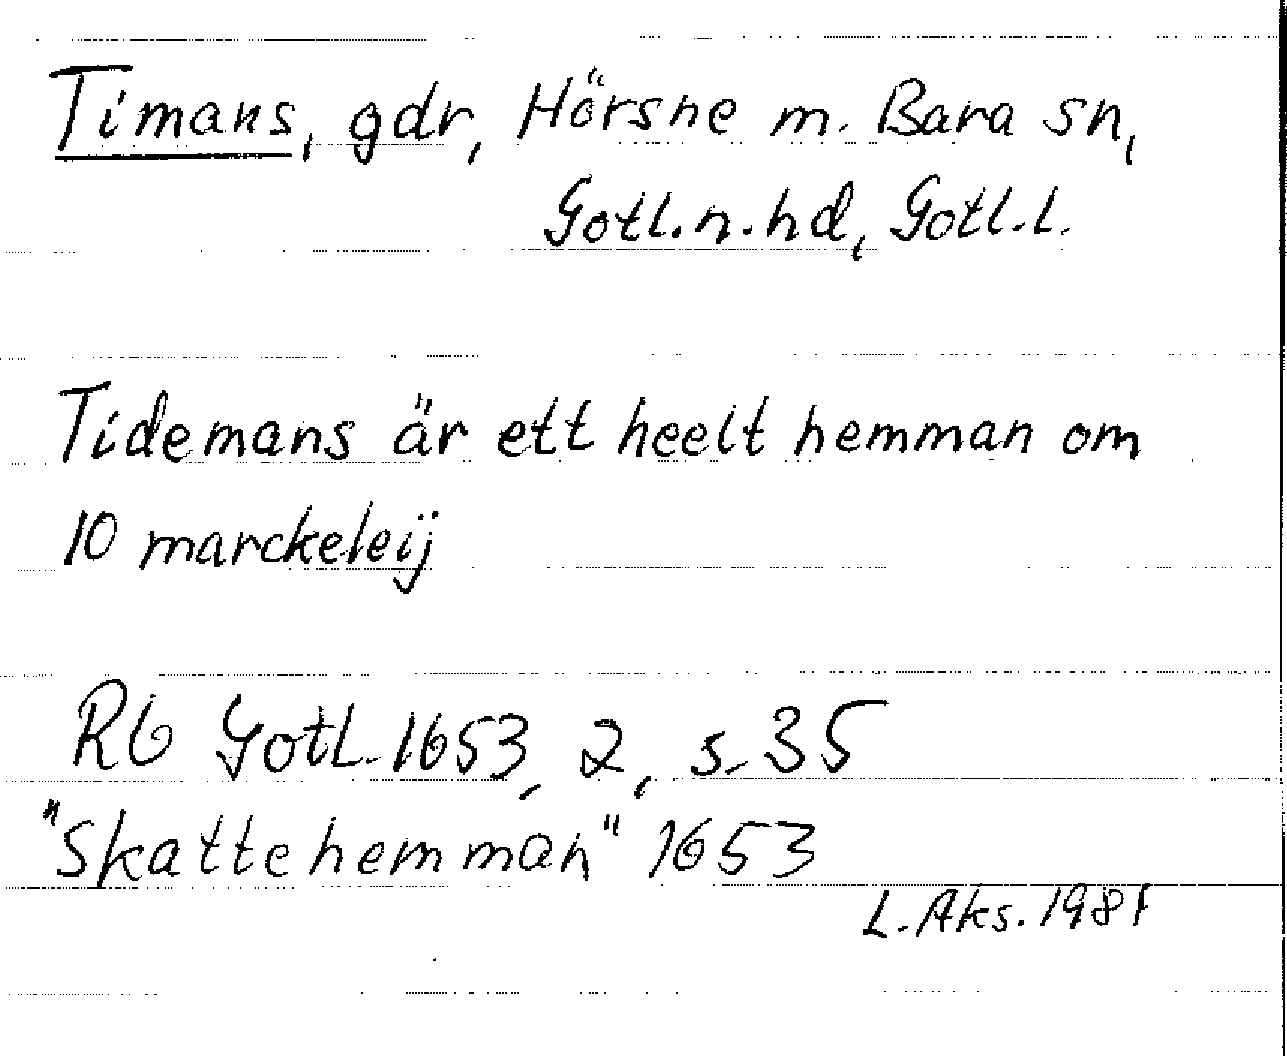 Timans, gdr, Hörsne m. Bara sn,
Gotl.n.hd, Gotl.l.
Tidemans är ett heelt hemman om
10 marckeleij
Rb Gotl. 1653, 2, s. 35
"Skattehemman" 1653
L. Aks. 1981